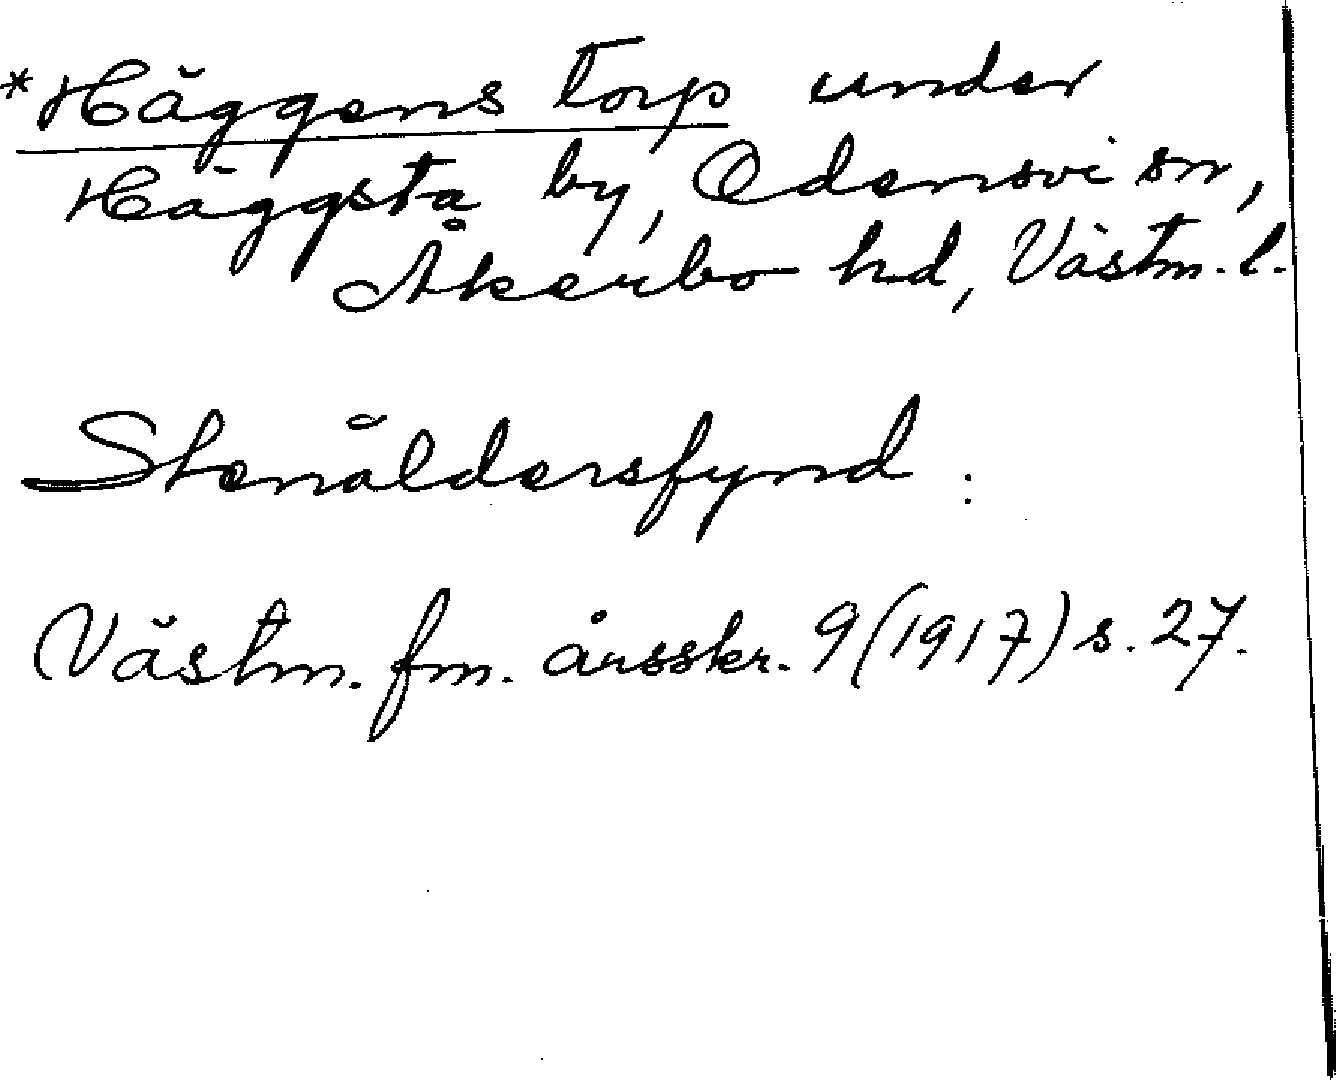 *Häggens torp under
Häggsta by, Odensvi sn,
Åkerbo hd, Västm. l.
Stenåldersfynd :
Västm. fm. årsskr. 9 (1917) s. 27.